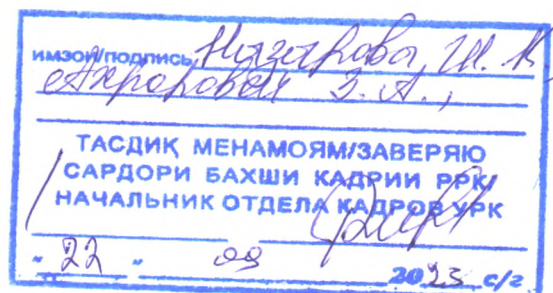 ИМЗОИ/ПОДПИСЬ Низирова Ш. К.
Ахроровой З. А.,
ТАСДИҚ МЕНАМОЯМ/ЗАВЕРЯЮ
САРДОРИ БАХШИ КАДРИИ РРК
НАЧАЛЬНИК ОТДЕЛА КАДРОВ УРК
" 22 " 09 2023 с/г